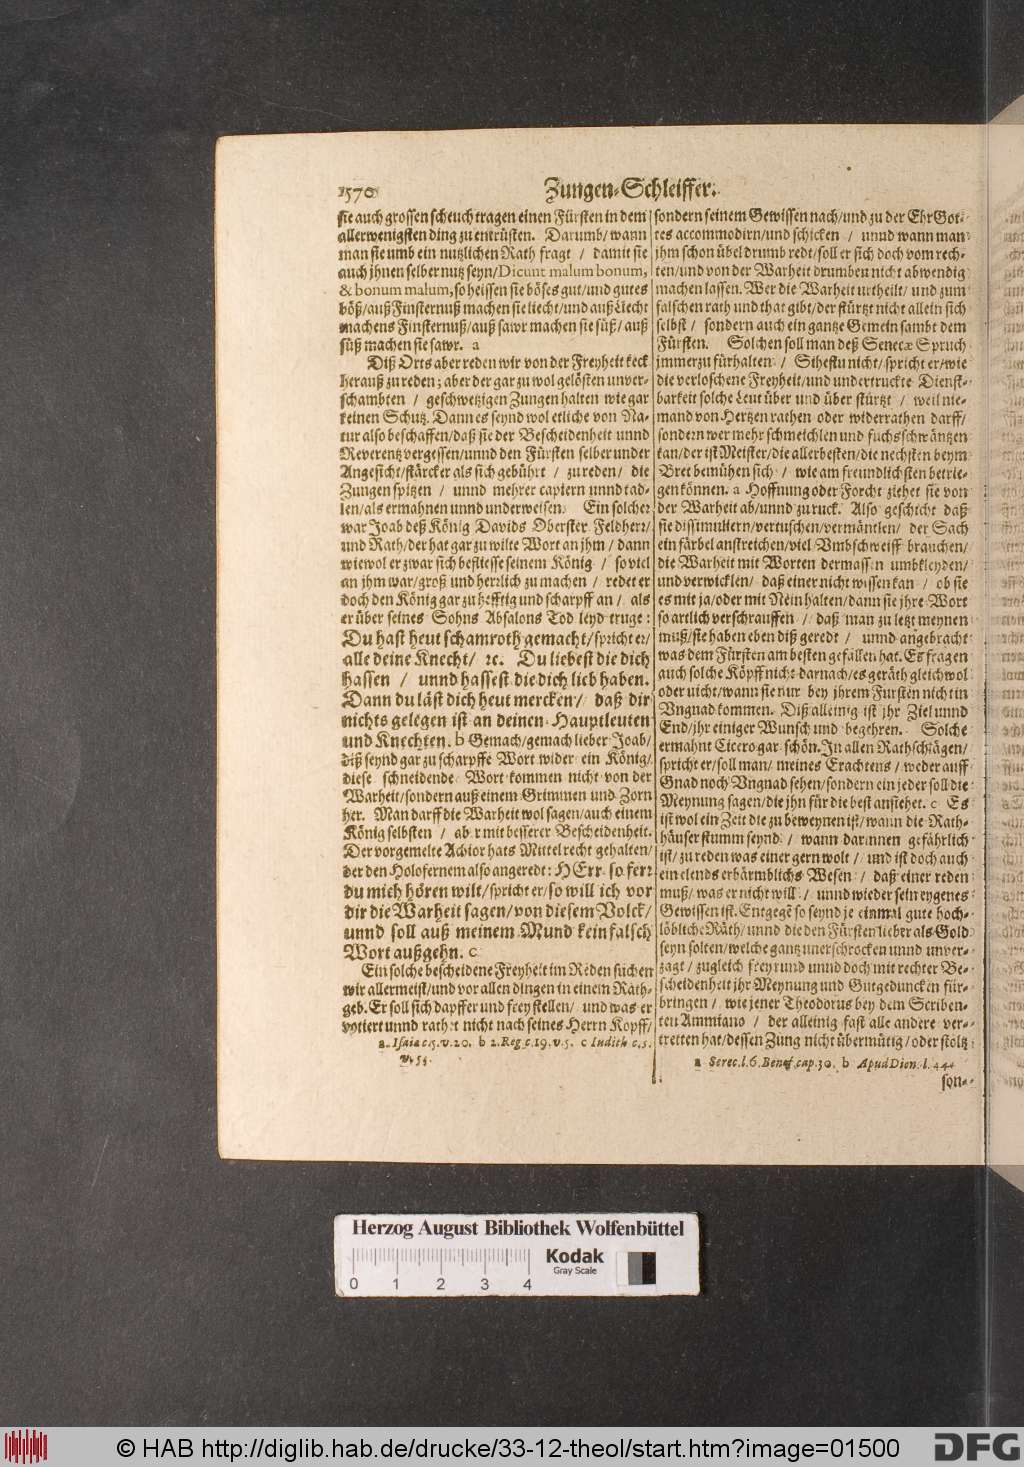 1570 Zungen-Schleiffer.
sie auch grossen scheuch tragen einen Fürsten in dem
allerwenigsten ding zu entrüsten. Darumb/ wann
man sie umb ein nutzlichen Rath fragt / damit sie
auch jhnen selber nutz seyn/ Dicunt malum bonum,
& bonum malum, so heissen sie böses gut/ und gutes
böß/ auß Finsternuß machen sie liecht/ und auß Liecht
machens Finsternuß/ auß sawr machen sie süß/ auß
süß machen sie sawr. a
Diß Orts aber reden wir von der Freyheit keck
herauß zu reden; aber der gar zu wol gelösten unver-
schambten / geschwetzigen Zungen halten wie gar
keinen Schutz. Dann es seynd wol etliche von Na-
tur also beschaffen/ daß sie der Bescheidenheit unnd
Reverentz vergessen/ unnd den Fürsten selber under
Angesicht/ stärcker als sich gebührt / zu reden/ die
Zungen spitzen / unnd mehrer capiern unnd tad-
len/ als ermahnen unnd underweisen. Ein solcher
war Joab deß König Davids Oberster Feldherr/
und Rath/ der hat gar zu wilte Wort an jhm / dann
wiewol er zwar sich beflisse seinem König / so viel
an jhm war/ groß und herzlich zu machen / redet er
doch den König gar zu hefftig und scharpff an / als
er über seines Sohns Absalons Tod leyd truge:
Du hast heut schamroth gemacht/ spricht er/
alle deine Knecht/ ꝛc. Du liebest die dich
hassen / unnd hassest die dich lieb haben.
Dann du läst dich heut mercken/ daß dir
nichts gelegen ist an deinen Hauptleuten
und Knechten. b Gemach/ gemach lieber Joab/
diß seynd gar zu scharpffe Wort wider ein König/
diese schneidende Wort kommen nicht von der
Warheit/ sondern auß einem Grimmen und Zorn
her. Man darff die Warheit wol sagen/ auch einem
König selbsten / aber mit besserer Bescheidenheit.
Der vorgemelte Achior hats Mittelrecht gehalten/
der den Holofernem also angeredt: HErr so fern
du mich hören wilt/ spricht er/ so will ich vor
dir die Warheit sagen/ von diesem Volck/
unnd soll auß meinem Mund kein falsch
Wort außgehn. c
Ein solche bescheidene Freyheit im Reden suchen
wir allermeist/ und vor allen dingen in einem Rath-
geb. Er soll sich dapffer und frey stellen/ und was er
votiert unnd rathet nicht nach seines Herrn Kopff/
a. Isaia c.5. v. 20. b 2. Reg c. 19. v. 5. c Iudith c. 5.
v. 5.
sondern seinem Gewissen nach/ und zu der Ehr Got-
tes accommodirn/ und schicken / unnd wann man
jhm schon übel drumb redt/ soll er sich doch vom rech-
ten/ und von der Warheit drumben nicht abwendig
machen lassen. Wer die Warheit urtheilt/ und zum
falschen rath und that gibt/ der stürtzt nicht allein sich
selbst / sondern auch ein gantze Gemein sambt dem
Fürsten. Solchen soll man deß Senecæ Spruch
jmmerzu fürhalten / Sihestu nicht/ spricht er/ wie
die verloschene Freyheit/ und undertruckte Dienst-
barkeit solche Leut über und über stürtzt / weil nie-
mand von Hertzen rathen oder widerrathen darff/
sondern wer mehr schmeichlen und fuchsschwäntzen
kan/ der ist Meister/ die allerbesten/ die nechsten beym
Bret bemühen sich / wie am freundlichsten betrie-
gen können. a Hoffnung oder Forcht ziehet sie von
der Warheit ab/ unnd zu ruck. Also geschicht daß
sie dissimuliern/ vertuschen/ vermäntlen/ der Sach
ein färbel anstreichen/ viel Umbschweiff brauchen/
die Warheit mit Worten dermassen umbkleyden/
und verwicklen/ daß einer nicht wissen kan / ob sie
es mit ja/ oder mit Nein halten/ dann sie jhre Wort
so artlich verschrauffen / daß man zu letzt meynen
muß/ sie haben eben diß geredt / unnd angebracht
was dem Fürsten am besten gefallen hat. Es fragen
auch solche Köpff nicht darnach/ es geräth gleich wol
oder nicht/ wann sie nur bey jhrem Fürsten nicht in
Ungnad kommen. Diß alleinig ist jhr Ziel unnd
End/ jhr einiger Wunsch und begehren. Solche
ermahnt Cicero gar schön. In allen Rathschlägen/
spricht er/ soll man/ meines Erachtens / weder auff
Gnad noch Ungnad sehen/ sondern ein jeder soll die
Meynung sagen/ die jhn für die best ansiehet. c Es
ist wol ein Zeit die zu beweynen ist/ wann die Rath-
häuser stumm seynd / wann darinnen gefährlich
ist/ zu reden was einer gern wolt / und ist doch auch
ein elends erbärmblichs Wesen / daß einer reden
muß/ was er nicht will / unnd wieder sein eygenes
Gewissen ist. Entgegẽ so seynd je einmal gute hoch-
löbliche Räth/ unnd die den Fürsten lieber als Gold
seyn solten/ welche gantz unerschrocken unnd unver-
zagt/ zugleich frey rund unnd doch mit rechter Be-
scheidenheit jhr Meynung und Gutgeduncken für-
bringen / wie jener Theodorus bey dem Scriben-
ten Ammiano / der alleinig fast alle andere ver-
tretten hat/ dessen Zung nicht übermütig/ oder stoltz
a Serec. l. 6. Benef. cap. 30. b Apud Dion. l. 44.
son-
Herzog August Bibliothek Wolfenbüttel
Kodak
Gray Scale
0 1 2 3 4
© HAB http://diglib.hab.de/drucke/33-12-theol/start.htm?image=01500
DFG